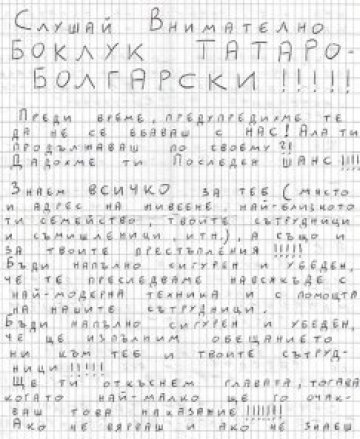 Слушай Внимателно
БОКЛУК ТАТАРО-
БОЛГАРСКИ !!!!!
Преди време, предупредихме те
да не се ебаваш с нас! Ала ти
продължаваш по своему?!
Дадохме ти последен шанс !!!!!
Знаем ВСИЧКО за теб (място
и адрес на живеене, най-близкото
ти семейство, твоите сътрудници
и съмишленици, итн.), а също и
за твоите престъпления !!!!!
Бъди напълно сигурен и убеден,
че те преследваме навсякъде с
най-модерна техника и с помощта
на нашите сътрудници.
Бъди напълно сигурен и убеден,
че ще изпълним обещанието
ни към теб и твоите сътруд-
ници !!!!!!
Ще ти откъснем главата, тогава
когато най-малко ще го очак-
ваш това наказание !!!!!!!
Ако не вярваш и ако не знаеш